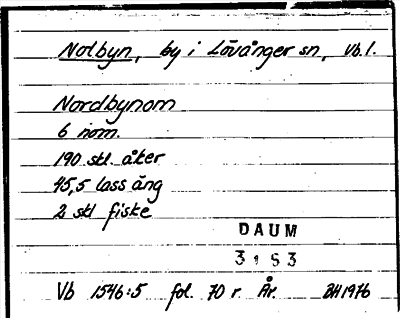 Nolbyn, by i Lövånger sn, Vb.l.
Nordbynom
6 nom.
190 skl. åker
45,5 lass äng
2 skl fiske
DAUM
3153
Vb 1546:5 fol. 70 r. År. BH 1976